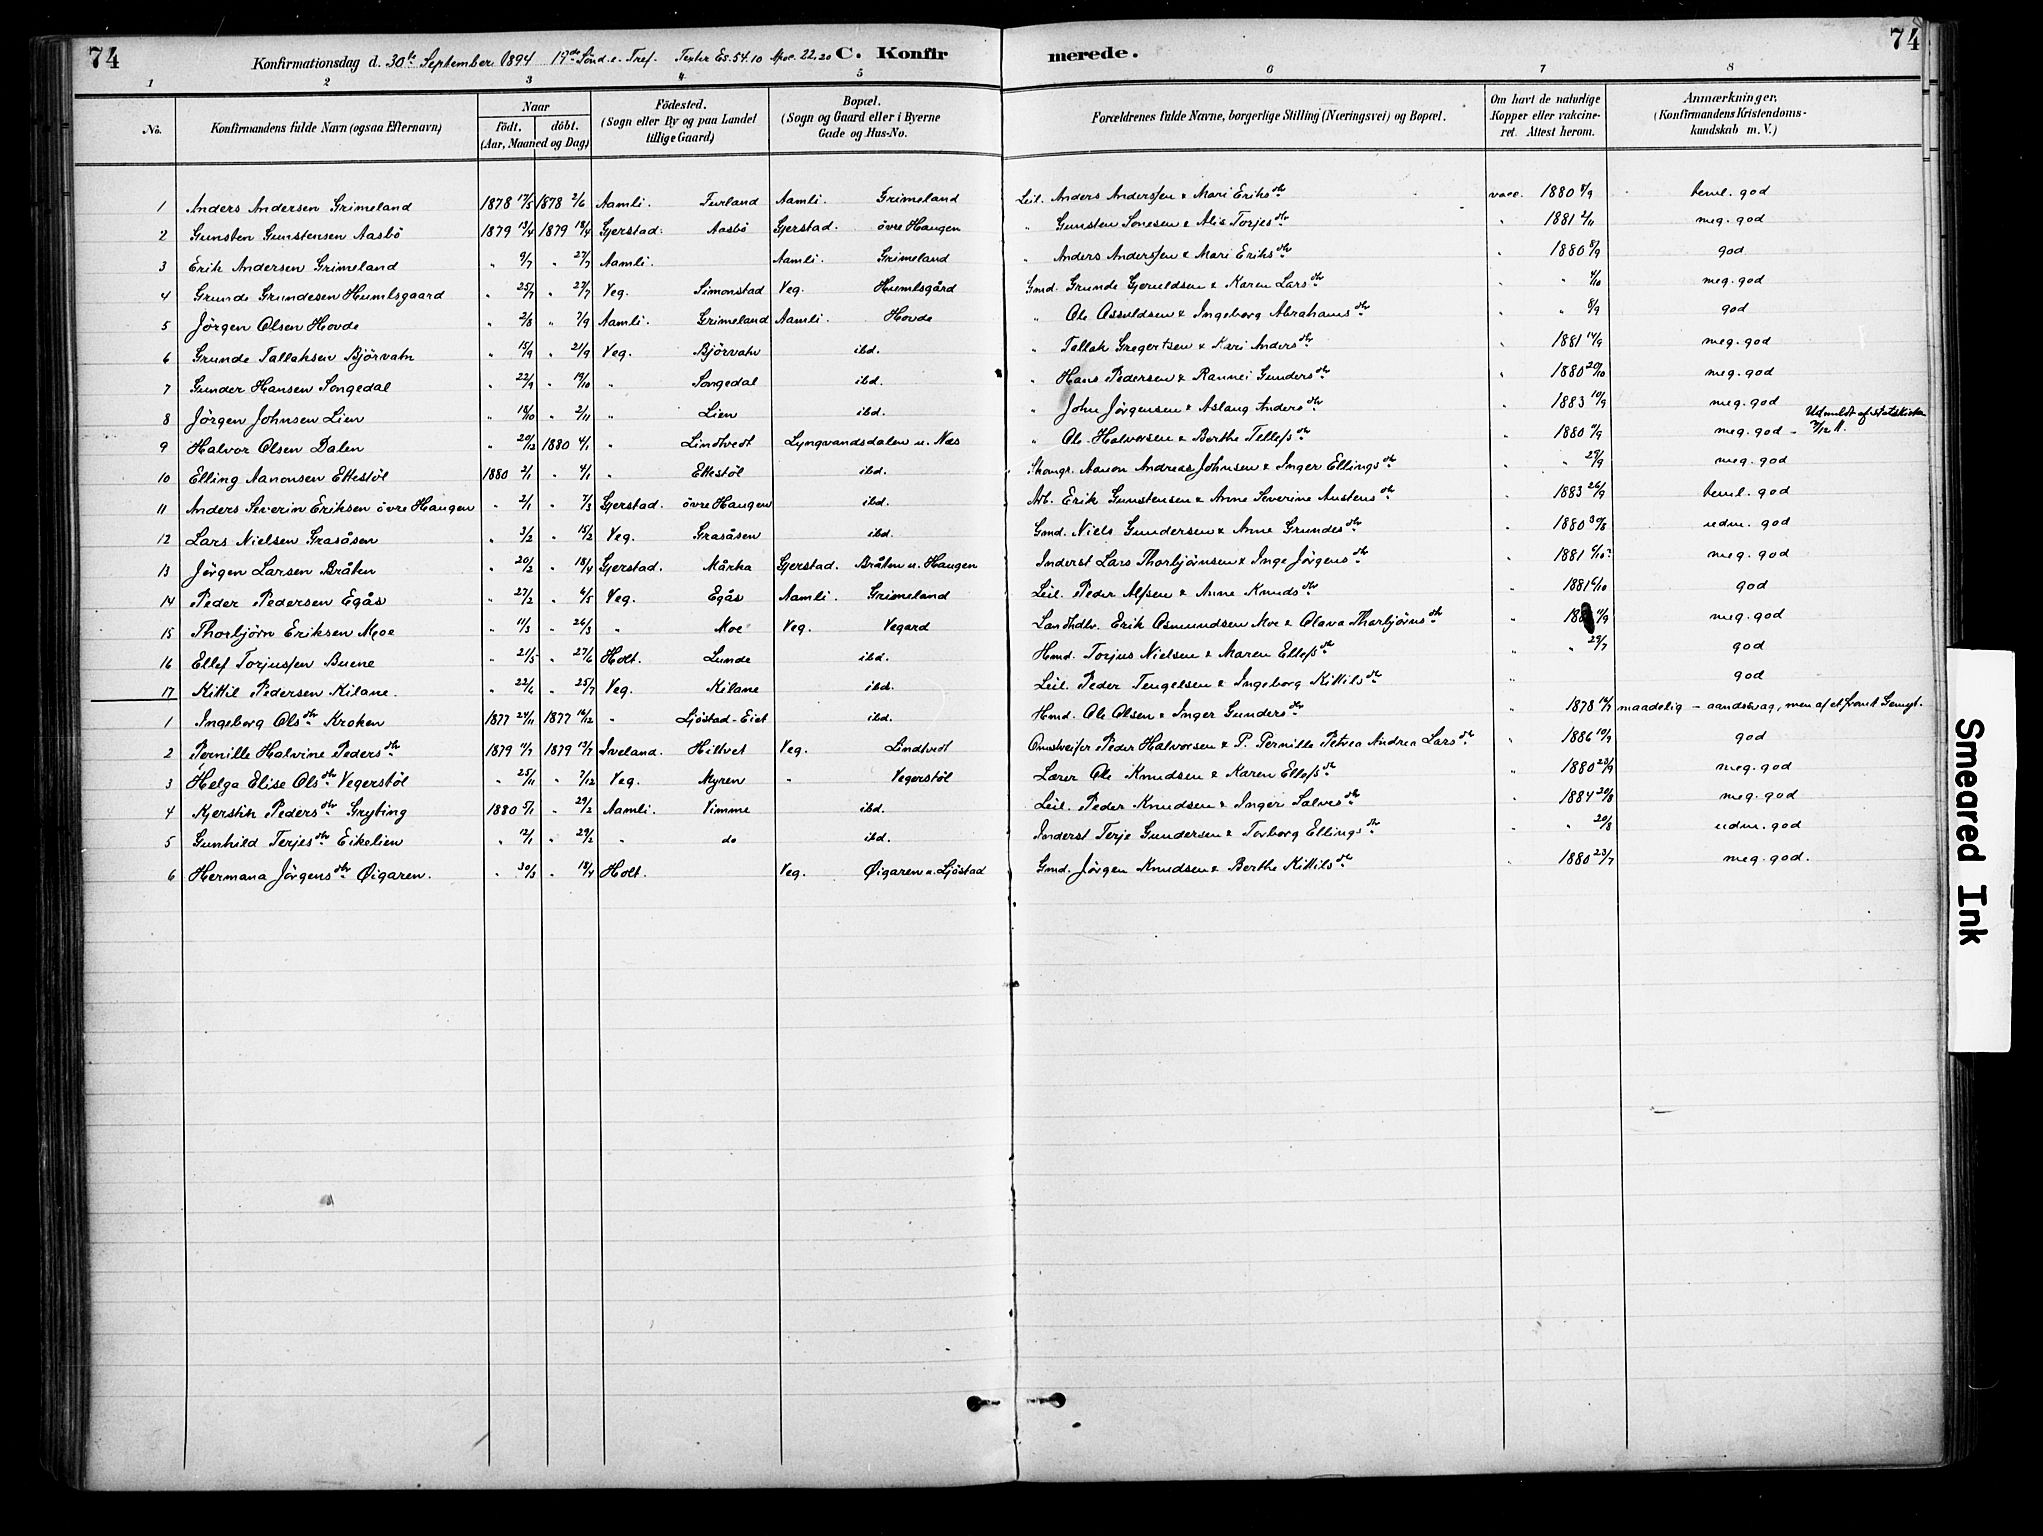 74
Konfirmationsdag d. 30te September 1894 19de Sönd. e. Tref. Texter Es. 54.10 Apoc. 22.20 C. Konfirmerede.
74
1 2 3 4 5 6 7 8
No. Konfirmandens fulde Navn (ogsaa Efternavn) Naar födt. döbt. (Aar, Maaned og Dag) Födested. (Sogn eller By og paa Landet tillige Gaard) Bopæl. (Sogn og Gaard eller i Byerne Gade og Hus-No. Forældrenes fulde Navne, borgerlige Stilling (Næringsvei) og Bopæl. Om havt de naturlige Kopper eller vakcineret. Attest herom. Anmærkninger, (Konfirmandens Kristendomskundskab m. V.)
1 Anders Andersen Grimeland 1878 17/5 1878 2/6 Aamli. Furland Aamli. Grimeland Leil. Anders Anderssen & Mari Eriksdtr vacc. 1880 8/9 teml. god
2 Gunsten Gunstensen Aasbö 1879 13/4 1879 18/4 Gjerstad. Aasbö Gjerstad. övre Haugen " Gunsten Sonesen & Alis Torjesdtr " 1881 2/11 meg. god
3 Erik Andersen Grimeland " 9/7 " 27/7 Aamli. Aamli. Grimeland " Anders Anderssen & Mari Eriksdtr " 1880 8/9 god
4 Grunde Grundesen Humlsgaard " 25/7 " 27/7 Veg. Simonstad Veg. Humlsgård Gmd. Grunde Gjeruldsen & Karen Larsdtr " " 4/10 meg. god
5 Jörgen Olsen Hovde " 2/8 " 7/9 Aamli. Grimeland Aamli. Hovde " Ole Ossuldsen & Ingeborg Abrahamsdtr " " 8/9 god
6 Grunde Tallaksen Björvatn " 15/9 " 21/9 Veg. Björvatn ibd. " Tallak Gregertsen & Kari Andersdtr 1881 14/9 meg. god
7 Gunder Hansen Songedal " 22/9 " 19/10 " Songedal ibd. " Hans Pedersen & Rannei Gundersdtr " 1880 20/10 meg. god
8 Jörgen Johnsen Lien " 18/10 " 2/11 " Lien ibd. " John Jörgensen & Aslaug Andersdtr 1883 10/9 meg. god
9 Halvor Olsen Dalen " 20/12 1880 4/1 " Lindtvedt Lyngvandsdalen u. Næs " Ole Halvorsen & Berthe Tellefsdtr " 1880 9/9 meg. god - Udmeldt af statskirken
10 Elling Aanonsen Ettestöl 1880 2/1 " 4/1 " Ettestöl ibd. Skougr. Aanon Andreas Johnsen & Inger Ellingsdtr " " 27/9 meg. god
11 Anders Severin Eriksen övre Haugen " 2/1 " 7/3 Gjerstad. övre Haugen ibd. Arb. Erik Gunstensen & Anne Severine Austensdtr " 1883 26/9 teml. god
12 Lars Nielsen Grasåsen " 3/2 " 15/2 Veg. Grasåsen ibd. Gmd. Niels Gundersen & Anne Grundesdtr " 1880 30/8 udm. god
13 Jörgen Larsen Bråten " 20/2 " 18/4 Gjerstad. Mårka Gjerstad. Bråten u. Haugen Inderst Lars Thorbjörnsen & Inge Jörgensdtr " 1881 meg. god
14 Peder Pedersen Egås " 27/2 " 6/5 Veg. Egås Aamli. Grimeland Leil. Peder Alfsen & Anne Knudsdtr 1881 6/10 god
15 Thorbjörn Eriksen Moe " 11/3 " 26/3 " Moe Veg. Vegard Landhdlr. Erik Osmundsen Moe & Olava Thorbjörnsdtr " 9/9 meg. god
16 Ellef Torjussen Buene " 21/5 " 27/6 Holt. Lunde ibd. Hmd. Torjus Nielsen & Maren Ellefsdtr " " 29/7 god
17 Kittil Pedersen Kilane. " 22/6 " 25/7 Veg. Kilane ibd. Leil. Peder Tengelsen & Ingeborg Kittilsdtr " god
1 Ingeborg Olsdtr Kroken 1877 24/11 1877 16/12 " Ljöstad-Eiet ibd. Hmd. Ole Olsen & Inger Gundersdtr " 1878 maadelig - aandssvag, men af et fromt Gemyt.
2 Pernille Halvine Pedersdtr 1879 11/7 1879 13/7 Iveland. Hiltvet Veg. Lindtvedt Peder Halvorsen & P. Pernille Petrea Andrea Larsdtr " 1886 10/9 god
3 Helga Elise Olsdtr Vegerstöl " 25/11 " 7/12 Veg. Myren " Vegerstöl Lærer Ole Knudsen & Karen Ellefsdtr " 1880 23/9 meg. god
4 Kjerstin Pedersdtr Gryting 1880 5/1 " 29/2 Aamli. Vimme ibd. Leil. Peder Knudsen & Inger Salvesdtr " 1884 20/8 meg. god
5 Gunhild Terjesdtr Eikelien " 12/1 " 29/2 " do ibd. Inderst Terje Gundersen & Torborg Ellingsdtr " " 20/8 udm. god
6 Hermana Jörgensdtr Øigaren. " 30/3 " 18/4 Holt. Veg. Øigaren u. Ljöstad Gmd. Jörgen Knudsen & Berthe Kittilsdtr " 1880 23/7 meg. god.
Smeared Ink